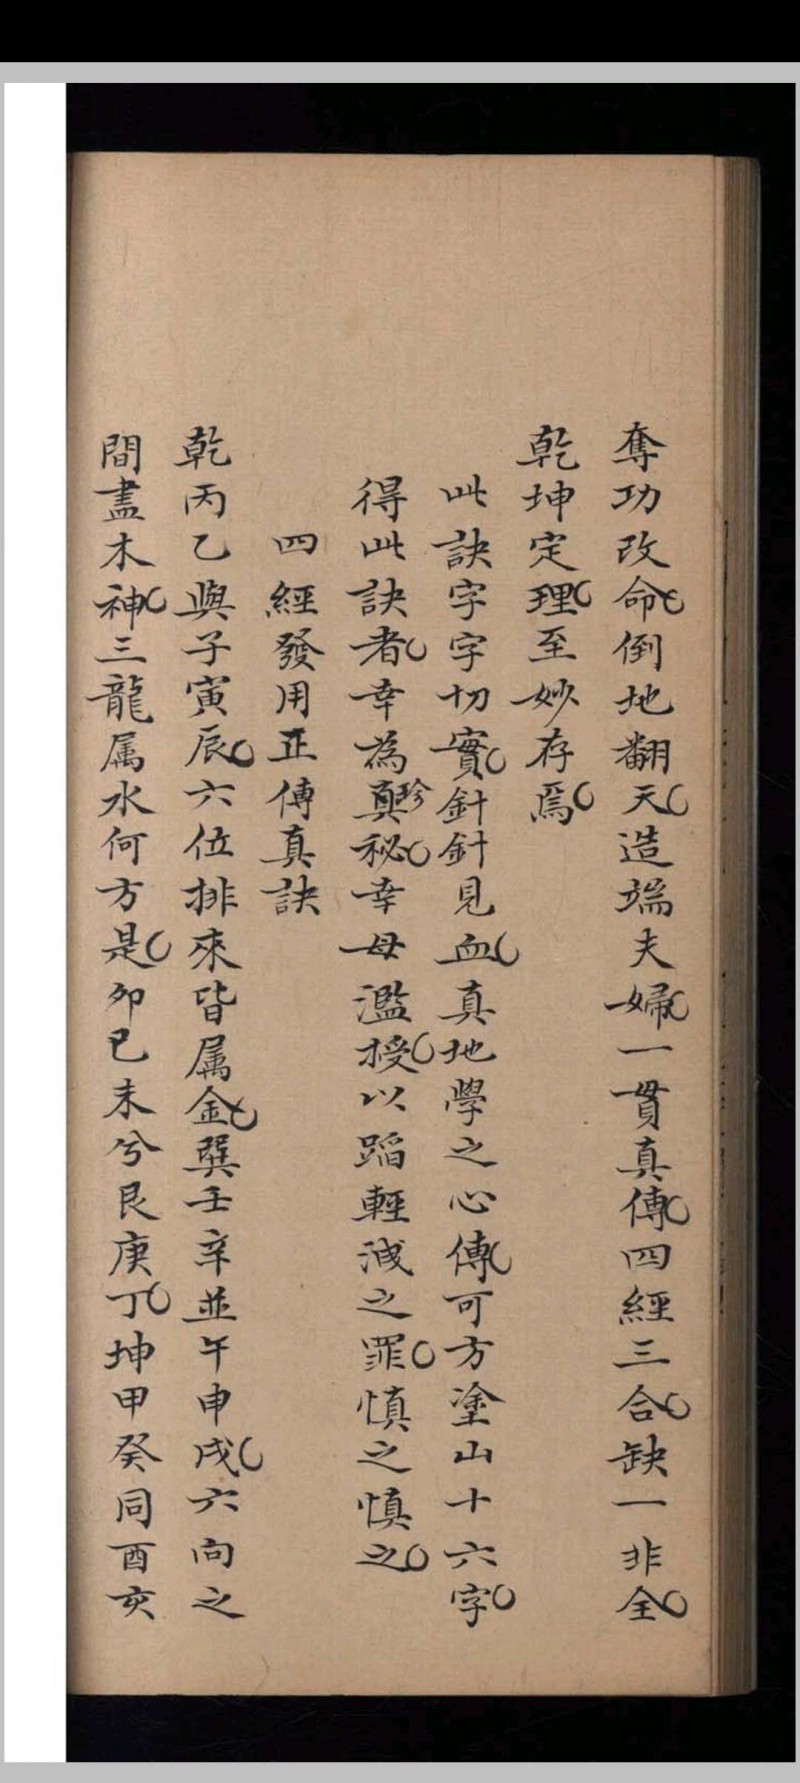 奪功改命倒地翻天造端夫婦一貫真傳四經三合缺一非全
乾坤定理至妙存焉
此訣字字切實針針見血真地學之心傳可方塗山十六字
得此訣者幸為真珍秘幸毋濫授以蹈輕洩之罪慎之慎之
四經發用正傳真訣
乾丙乙與子寅辰六位排來皆属金巽壬辛並午申戌六向之
間盡木神三龍属水何方是卯巳未兮艮庚丁坤甲癸同酉亥